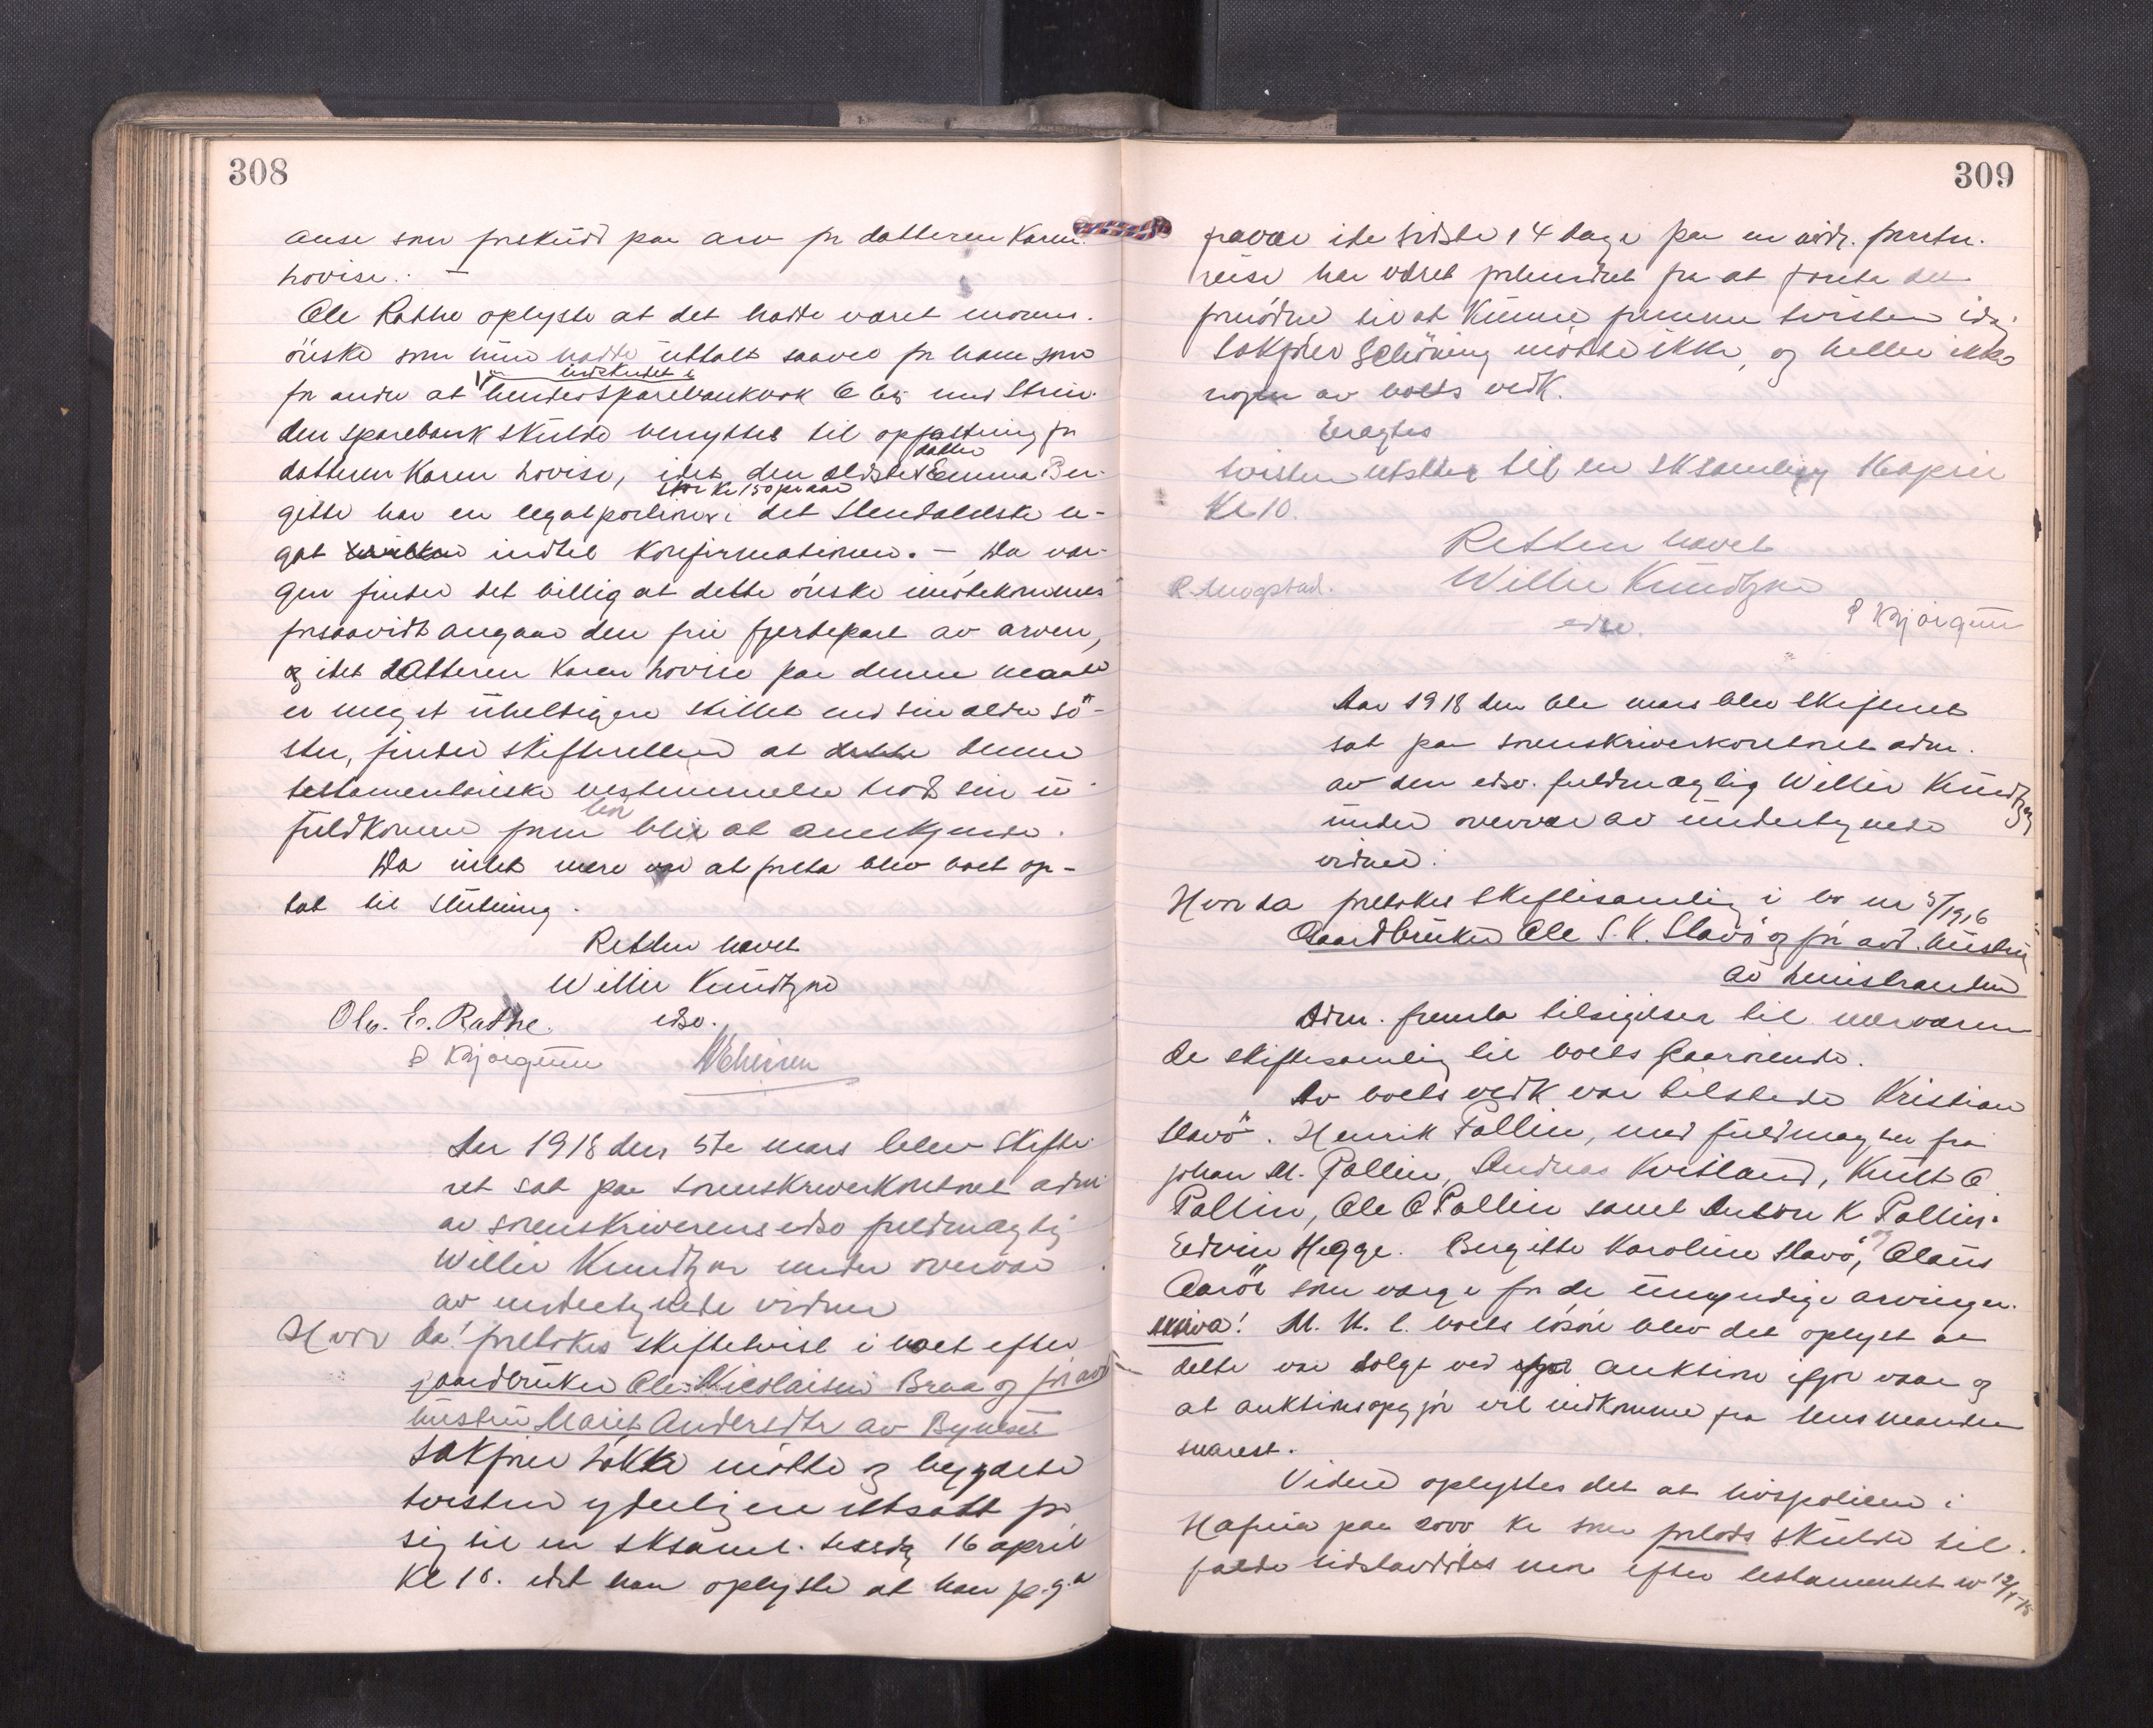 308
anse som forskud paa arv for datteren Karen
Lovise. –
Ole Rathe oplyste at det hadde været morens
önske som hun hadde uttalt saavel for ham som
indskudet i
for andre at hendes sparebankbok C 65 med Strin-
den sparebank skulde benyttes til opfostring for
datter
datteren Karen Lovise, idet den ældste Emma Ber-
stor kr 150 pr aar
gitte har en legatportion i det
gat indtil konfirmationen. – Da ver-
gen finder det billig at dette önske imötekommes
forsaavidt angaar den frie fjerdepart av arven,
og idet datteren Karen Lovise paa denne maate
er meget uheldigere stillet end sin ældre sö-
ster, finder skifteretten at dette denne
testamentariske bestemmelse trods sin u-
bör
fuldkomne form blir at anerkjende.
Da intet mere var at foreta blev boet op-
tat til slutning.
Retten hævet
Willie Kundtzon
Ole E. Rathe. edsv.
P Bjørgum
Aar 1918 den 5te mars blev skifte-
ret sat paa sorenskriverkontoret adm.
av sorenskriverens edsv fuldmægtig
Willie Kundtzon under overvær
av undertegnede vidner
Hvor da! foretokes skiftetvist i boet efter
gaardbruker Ole Nicolaisen Braa og før avd
hustru Marit Andersdtr av Bynesset
Sakfører Løkke mötte og begjærte
tvisten yderligere utsatt for
sig til en sksaml. tirsdag 16 april
Kl 10. idet han oplyste at han p.g.a
309
fravær i de sidste 14 dage paa en forretn.
reise har været forhindret fra at foreta det
fornödne til at kunne fremme tvisten idag.
Sakfører Schöning mötte ikke, og heller ikke
nogen av boets vedk.
Eragtes
tvisten utsættes til en sksamling 16 april
Kl 10.
Retten hævet
Willie Kundtzon
R. Mogstad. edsv. P Bjørgum
Aar 1918 den 6te mars blev skifteret
sat paa sorenskriverkontoret adm.
av den edsv. fuldmægtig Willie Kundtzon
under overvær av undertegnede
vidner:
Hvor da foretokes skiftesamling i bo nr 5/1916
Gaardbruker Ole S. K. Slavö og før avd. hustru
av Leinstranden
Adm. fremla tilsigelser til nærværen-
de skiftesamling til boets paarörende.
Av boets vedk var tilstede Kristian
Slavö. Henrik Pallin, med fuldmagter fra
Johan M. Pallin, Andreas Kvitland, Knut O
Pallin, Ole O Pallin samt Anton K Pallin.
Edvin Hegge. Bergitte Karoline Slavö, og Olaus
Aaröe som værge for de umyndige arvinger.
M. H. t. boets løsöre blev det oplyst at
dette var solgt ved auktion ifjor vaar og
at auktionsopgjör vil indkomme fra lensmanden
snarest.
Videre oplystes det at livspolicen i
Hafnia paa 2000 kr som forlods skulde til-
falde sidstavdödes mor efter testamentet av 12/1-15